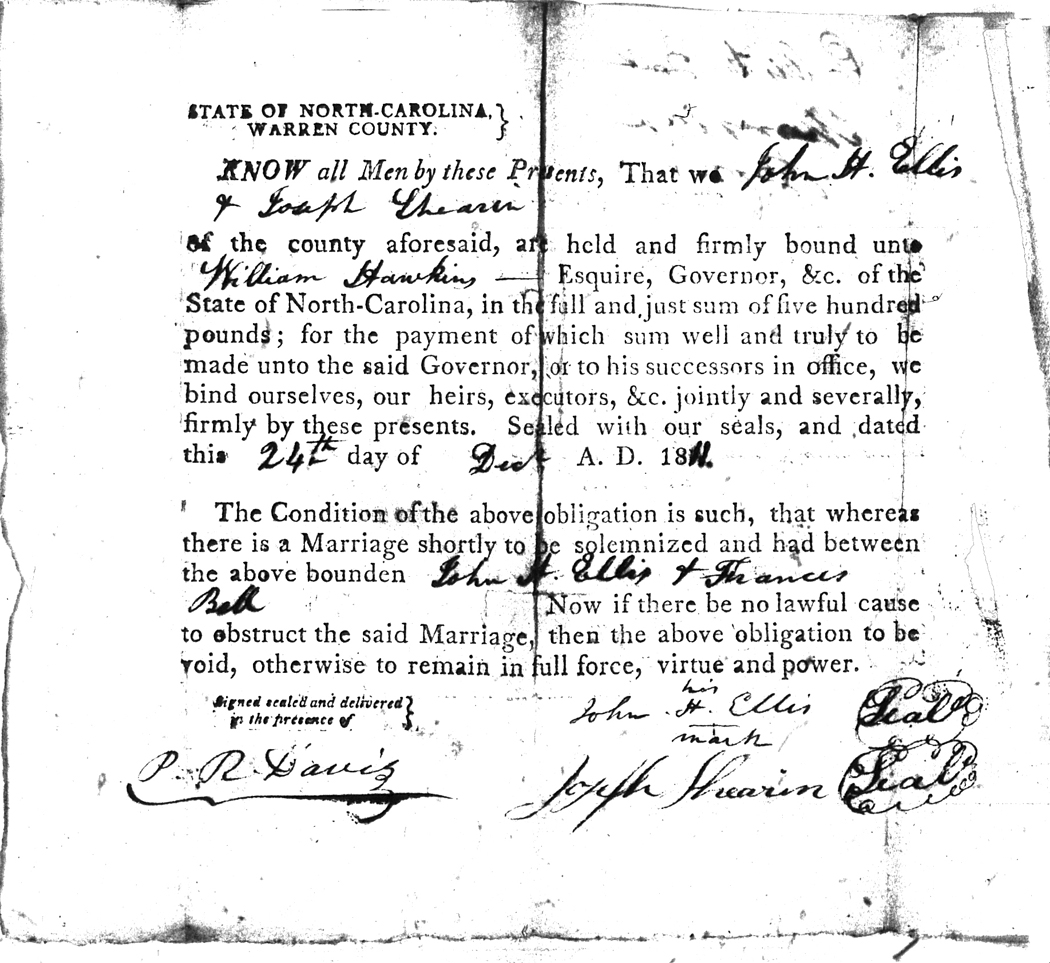 STATE OF NORTH-CAROLINA,
WARREN COUNTY.
KNOW all Men by these Presents, That we John H. Ellis
& Joseph Shearin
of the county aforesaid, are held and firmly bound unto
William Hawkins — Esquire, Governor, &c. of the
State of North-Carolina, in the full and just sum of five hundred
pounds; for the payment of which sum well and truly to be
made unto the said Governor, or to his successors in office, we
bind ourselves, our heirs, executors, &c. jointly and severally,
firmly by these presents. Sealed with our seals, and dated
this 24th day of Decr A. D. 1811.
The Condition of the above obligation is such, that whereas
there is a Marriage shortly to be solemnized and had between
the above bounden John H. Ellis & Frances
Bell Now if there be no lawful cause
to obstruct the said Marriage, then the above obligation to be
void, otherwise to remain in full force, virtue and power.
Signed sealed and delivered
in the presence of
his
John H. Ellis Seal
mark
P. R. Davis
Joseph Shearin Seal